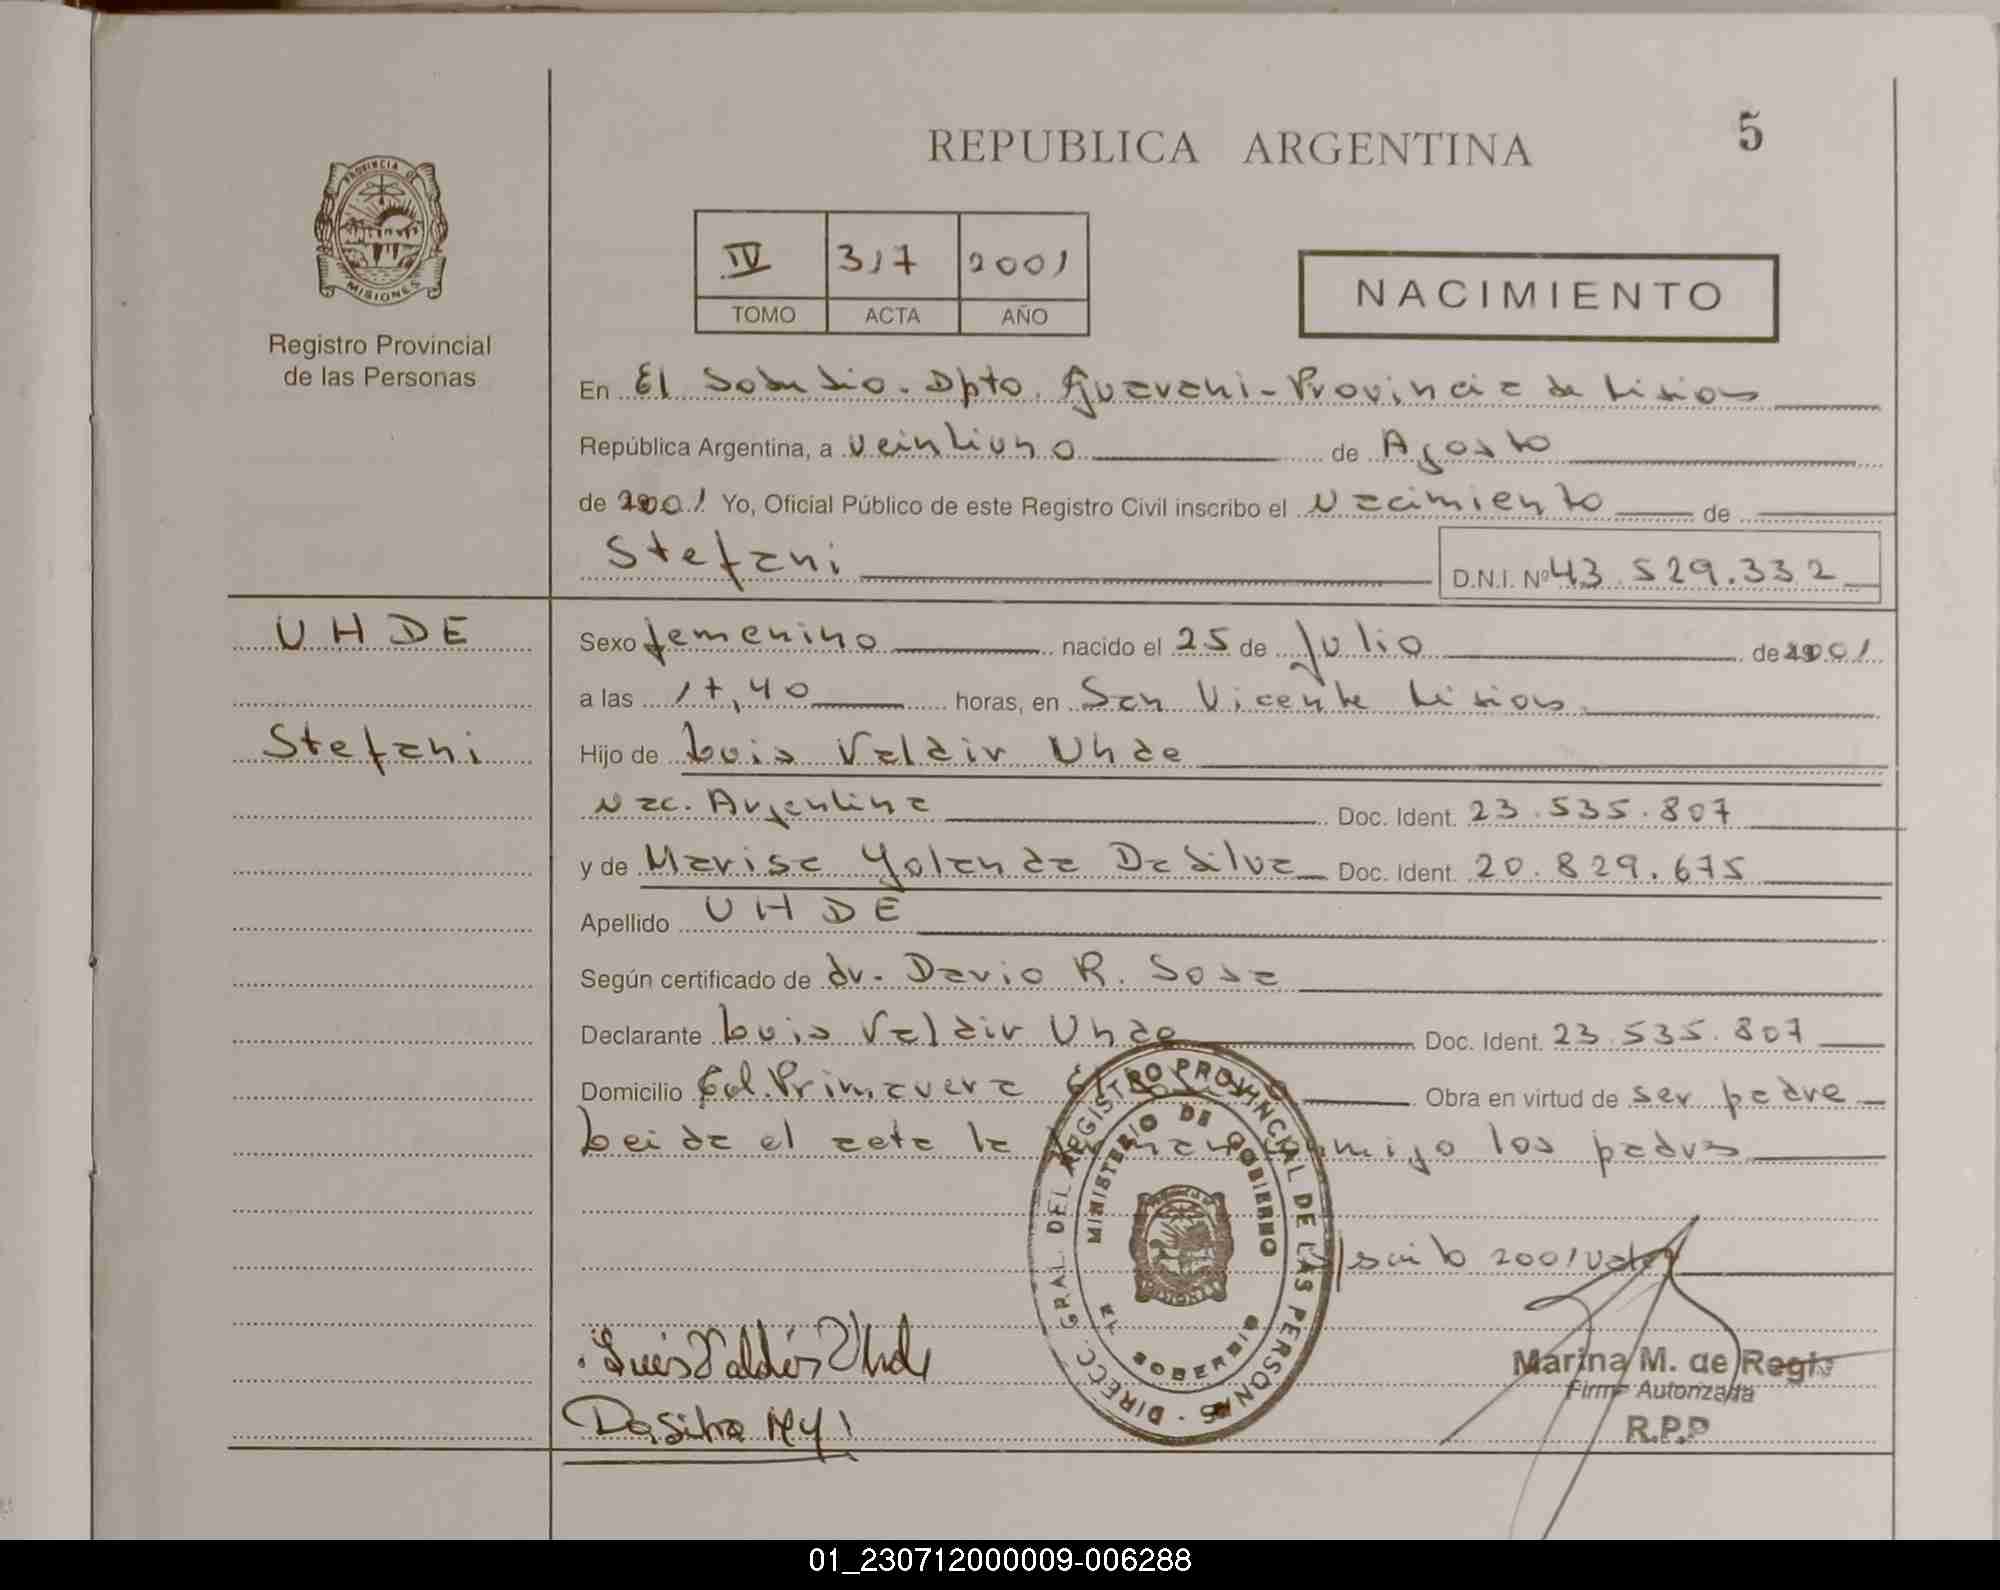 REPUBLICA ARGENTINA
5
PROVINCIA DE
MISIONES
Registro Provincial
de las Personas
IV 317 2001
TOMO ACTA AÑO
NACIMIENTO
En El Soberbio. Dpto. Guarani - Provincia de Misiones
República Argentina, a veintiuno de Agosto
de 2001 Yo, Oficial Público de este Registro Civil inscribo el Nacimiento de
Stefani D.N.I. Nº 43.529.332
UHDE
Stefani
Sexo femenino nacido el 25 de Julio de 2001
a las 17,40 horas, en San Vicente Misiones
Hijo de Luis Valdir Uhde
Nac. Argentina Doc. Ident. 23.535.807
y de Marisa Yolanda Da Silva Doc. Ident. 20.829.675
Apellido UHDE
Según certificado de dr. Dario R. Sosa
Declarante Luis Valdir Uhde Doc. Ident. 23.535.807
Domicilio Col. Primavera Obra en virtud de ser padre
Leida el acta la firman conmigo los padres
2001 vale
DIRECC. GRAL. DEL REGISTRO PROVINCIAL DE LAS PERSONAS
MINISTERIO DE GOBIERNO
EL SOBERBIO
Luis Valdir Uhde
Da Silva M Y
Marina M. de Regis
Firma Autorizada
R.P.P
01_230712000009-006288